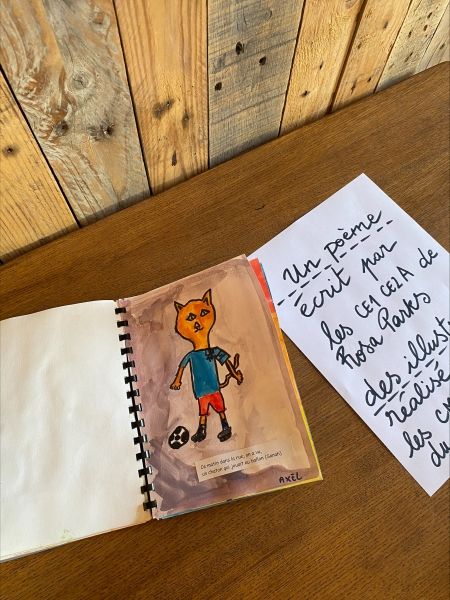 Ce matin dans la rue, on a vu,
un chaton qui jouait au ballon (Sanah)
AXEL
Un poème
écrit par
les CE1 CE2A de
Rosa Parks
des illust
réalisé
les
du